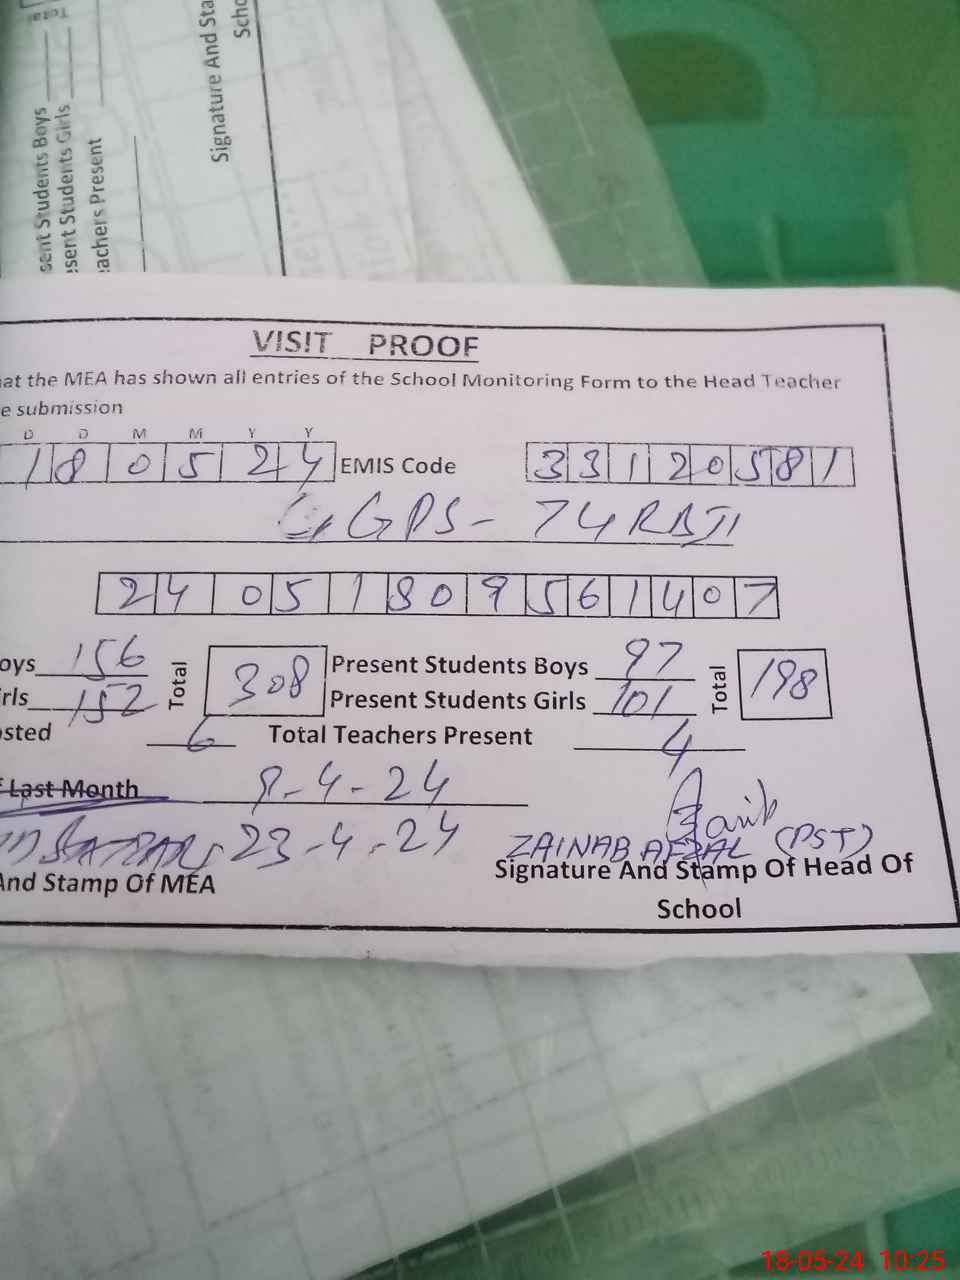 Total
sent Students Boys
sent Students Girls
eachers Present
Signature And Sta
Scho
VISIT PROOF
at the MEA has shown all entries of the School Monitoring Form to the Head Teacher
e submission
D D M M Y Y
1 8 0 5 2 4 EMIS Code 3 3 1 2 0 5 8 1
GGPS - 74 RB II
2 4 0 5 1 8 0 9 5 6 1 4 0 7
oys 156 Total 308 Present Students Boys 97 Total 198
rls 152 Present Students Girls 101
sted 6 Total Teachers Present 4
Last Month 8-4-24
23-4-24 ZAINAB AFZAL (PST)
And Stamp Of MEA Signature And Stamp Of Head Of
School
18-05-24 10:25